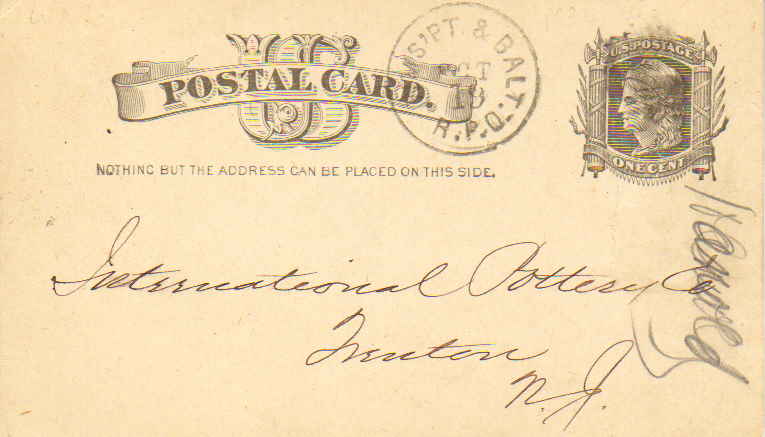 US
POSTAL CARD.
S'PT. & BALT.
OCT
18
R.P.O.
U.S. POSTAGE
ONE CENT
NOTHING BUT THE ADDRESS CAN BE PLACED ON THIS SIDE.
International Pottery Co
Trenton
N.J.